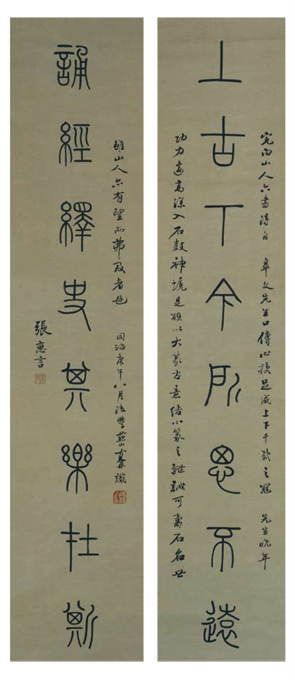 完白山人六書得自 皋文先生口傳心授足成上下千載之冠 先生晚年
上古下今所思不遠
功力邃高深入石鼓神境是聯以大篆古意結小篆之體誠可壽石名世
雖山人亦有望而弗及者也 同治庚午八月後學燕山識
誦經繹史其樂在斯
張惠言